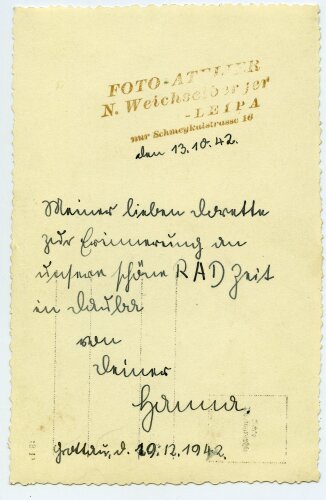 FOTO-ATELIER
N. Weichselberger
-LEIPA
nur Schmeykalstrasse 16
den 13.10.42.
Meiner lieben Dorette
zur Erinnerung an
unsere schöne RAD Zeit
in Dauba
von
Deiner
Hanna.
d. 19.12.1942.